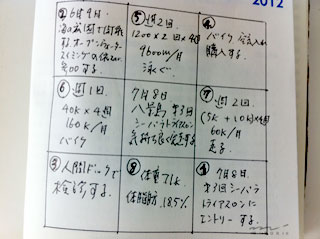 2012
② 6月9日
海の公園で開催
するオープンウォーター
スイミングの
参加する。
⑤ 週2回
1200×2回×4週
9600m/月
泳ぐ
④
バイク
購入する。
⑥ 週1回
40K×4週
160K/月
バイク
7月8日
八景島 第3回
シーパラトライアスロン
気持ち良く完走する
⑦ 週2回
(5K+10K)×4週
60K/月
走る
③ 人間ドックで
検診する。
⑧ 体重71K
体脂肪 18.5%
① 7月8日
第3回シーパラ
トライアスロンに
エントリーする。